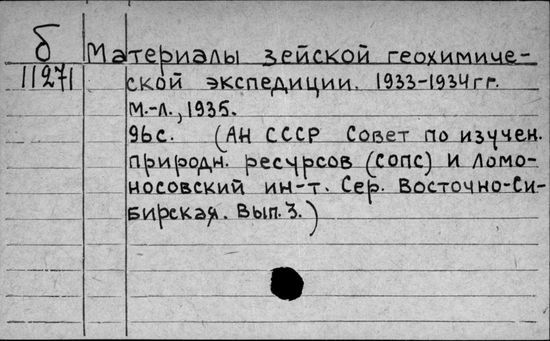 б Материалы зейской геохимиче-
11271 ской экспедиции. 1933-1934 гг.
М.-Л., 1935.
96с. (АН СССР Совет по изучен.
природн. ресурсов (СОПС) и Ломо-
носовский ин-т. Сер. Восточно-Си-
бирская. Вып. 3.)